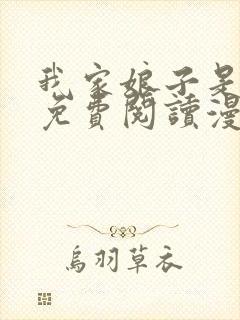 我家娘子是
免費閱讀漫
烏羽草衣